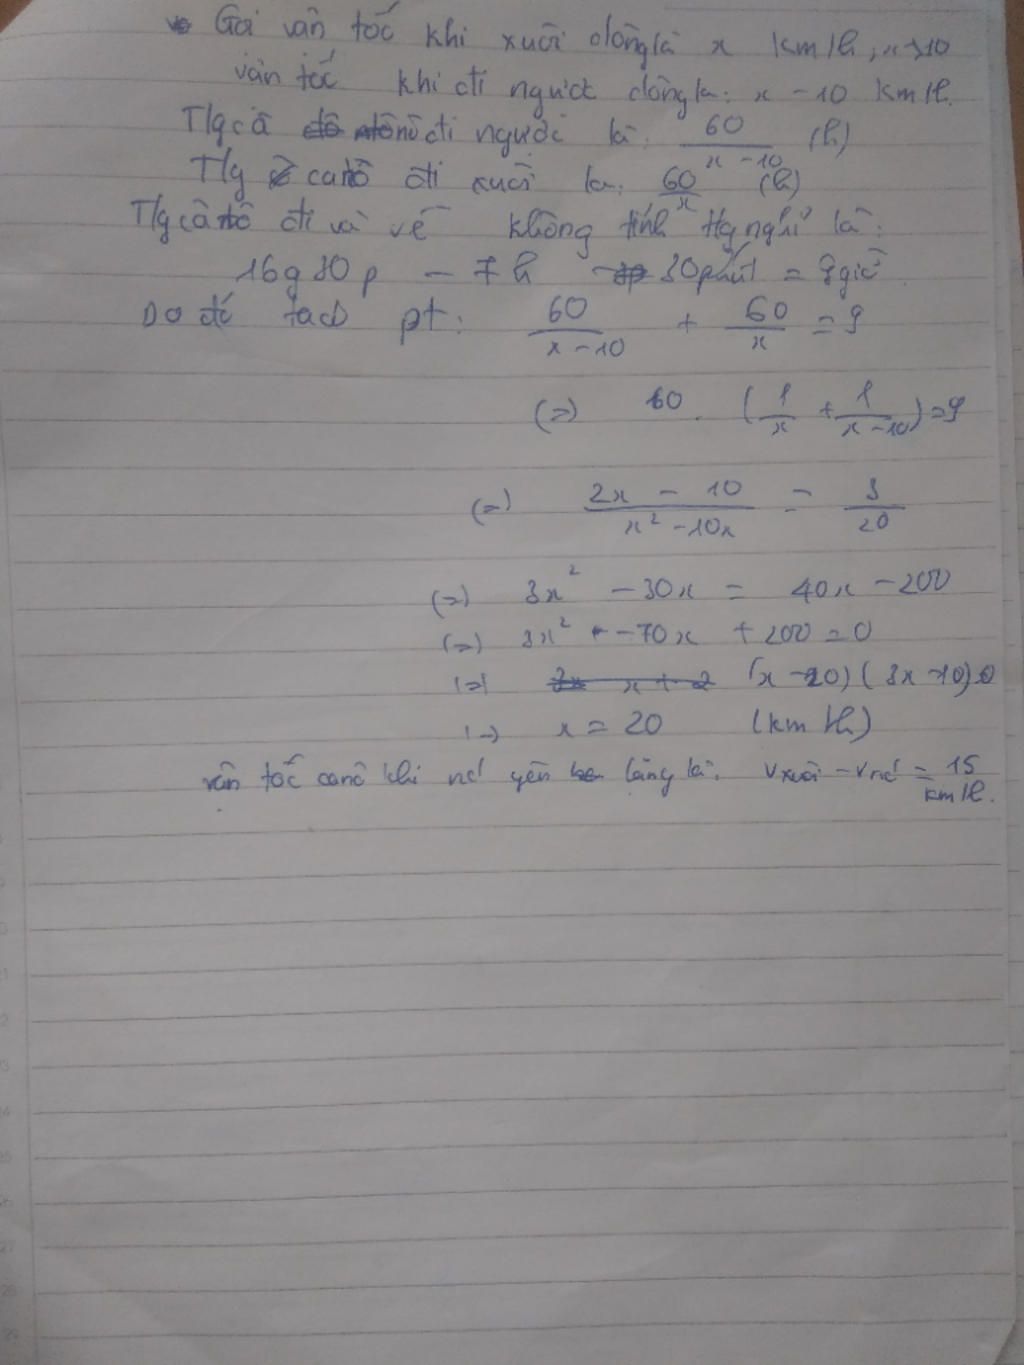 Gọi vân tốc khi xuôi dòng là x km/h, x>10
vân tốc khi đi ngược dòng là: x - 10 km/h.
T/g ca nô đi ngược là: 60/(x - 10) (h)
T/g ca nô đi xuôi là: 60/x (h)
T/g ca nô đi và về không tính t/g nghỉ là:
16g30p - 7h - 30phút = 9giờ
Do đó ta có pt: 60/(x - 10) + 60/x = 9
(=) 60 . (1/x + 1/(x - 10)) = 9
(=) (2x - 10)/(x² - 10x) = 3/20
(=) 3x² - 30x = 40x - 200
(=) 3x² - 70x + 200 = 0
(=) (x - 20)(3x - 10) = 0
(=) x = 20 (km/h)
vân tốc canô khi nc' yên lặng là: Vxuôi - Vnc' = 15 km/h.